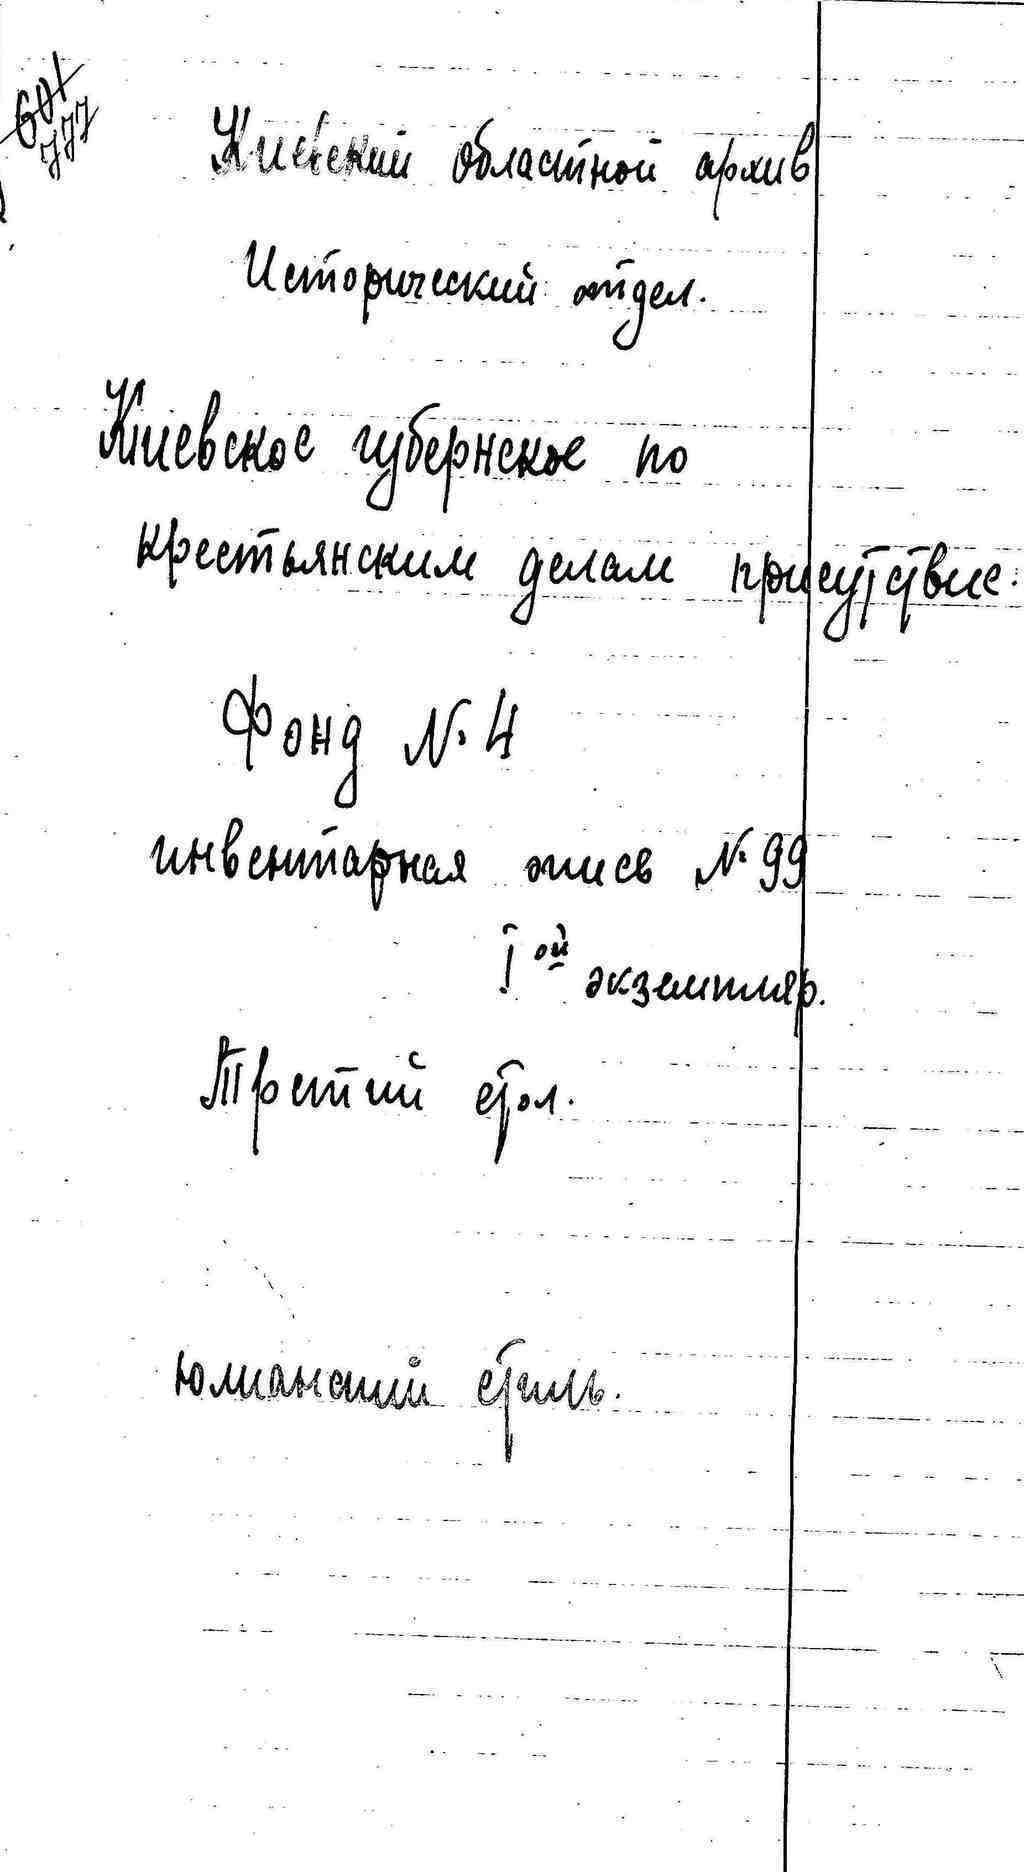 601
777
Киевский областной архив
Исторический отдел.
Киевское губернское по
крестьянским делам присутствие.
Фонд № 4
инвентарная опись № 99
I ой экземпляр.
Третий стол.
юлианский стиль.